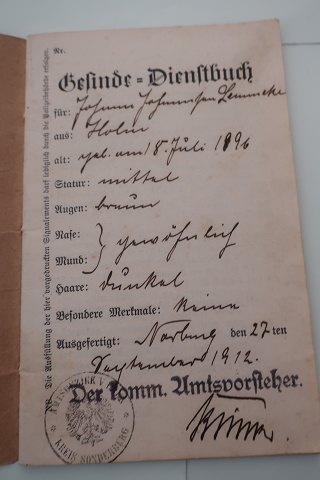 Nr.
Gesinde=Dienstbuch
für: Johann Johannsen Lemmcke
aus: Holm
alt: geb. am 18. Juli 1896
Statur: mittel
Augen: braun
Nase: } gewöhnlich
Mund:
Haare: dunkel
Besondere Merkmale: keine
Ausgefertigt: Norburg den 27 ten
September 1912.
Der komm. Amtsvorsteher.
KREIS SONDERBURG
NB. Die Ausfüllung der hier vorgedruckten Signalements darf lediglich durch die Polizeibehörde erfolgen.